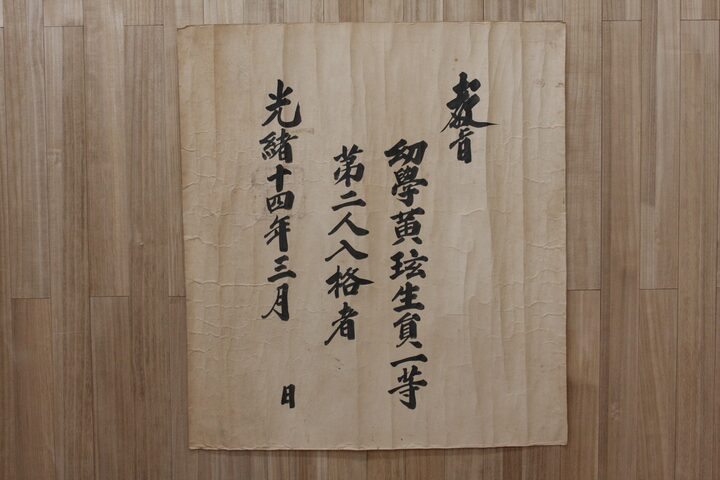 教旨
幼學黃玹生員一等
第二人入格者
光緖十四年三月 日